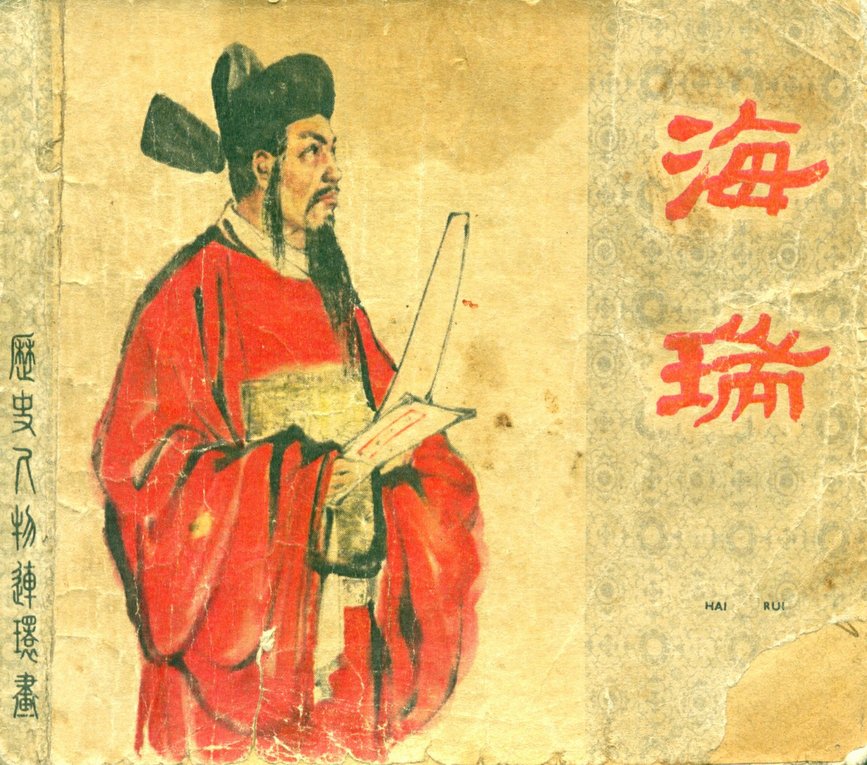 海瑞
HAI RUI
歷史人物連環畫